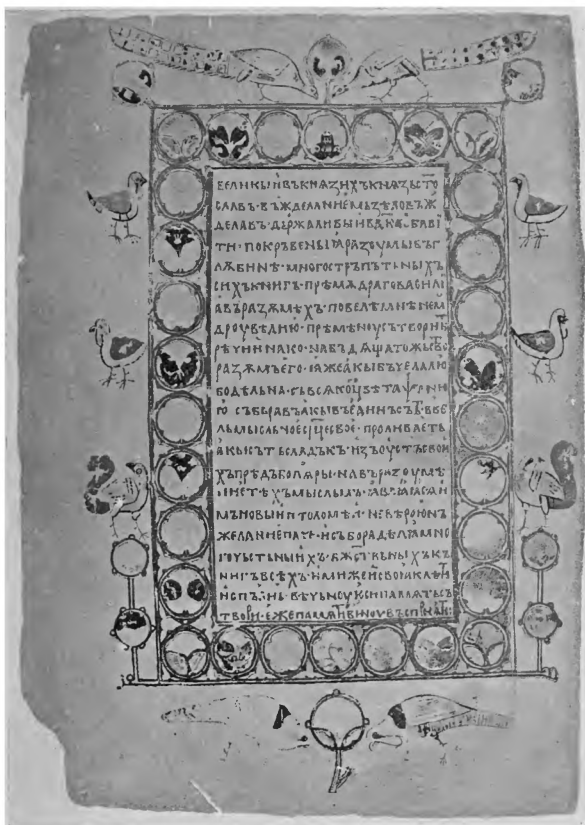 ВЕЛИКЫИВЪКНѦЗИХЪКНѦЗЬСТО
СЛАВЪ·ВЪЖДЕЛАНИЕМЬЗѢЛОВЪЖ
ДЕЛАВЪ·ДЬРЖАЛИВЫИВЛ҃КА·ѠБАВИ
ТИ·ПОКРЪВЕНЫꙖРАЗОУМЫВЪГ
ЛѪБИНѢ·МНОГОСТРЪПЪТЬНЫХЪ
СИХЪКНИГЪ·ПРѢМѪДРАГОВАСИЛІ
ꙖВЪРАЗѪМѢХЪ·ПОВЕЛѢМЬНѢНЕМ
ДРОУВѢДИЮ·ПРѢМѢНОУСЪТВОРИТИ
РѢЧИИНАКО·НАБЪДѦЩАТОЖЬСТВО
РАЗѪМЪЕГО·ꙖЖЕАКЫБЪЧЕЛАЛЮ
БОДѢЛЬНА·СЪВСꙖКОЦВѢТАПЬСАНИ
Ю СЪБЬРАВЪ·АКЫВЪЕДИНЪСЪТЪ·ВЪВЕ
ЛЬМЫСЛЬНОЕСРЦЕСВОЕ·ПРОЛИВАЕТЬ
АКЫСЪТЪСЛАДЪКЪ·ИЗЪОУСТЪСВОИ
ХЪПРѢДЪБОЛꙖРЫ·НАВЪРАЗОУМѢ
НИЕТѢХЪМЫСЛЬМЪ·ꙖВЛꙖꙖСѦИ
МЪНОВЫИПТОЛОМѢИ·НЕВѢРОЮНЪ
ЖЕЛАНИЕПАЧЕ·ИСЪБОРАДѢЛꙖМНО
ГОЧЬСТЬНЫИХЪ·БЖСТВЬНЫХЪКЪ
НИГЪВСѢХЪ·ИМИЖЕИСВОꙖКЛѢТИ
ИСПЪЛНЬ·ВѢЧЬНОУЮСИПАМѦТЬСЪ
ТВОРИ·ЕЖЕПАМѦТИВИНОУВЪСПРИꙖТИ: